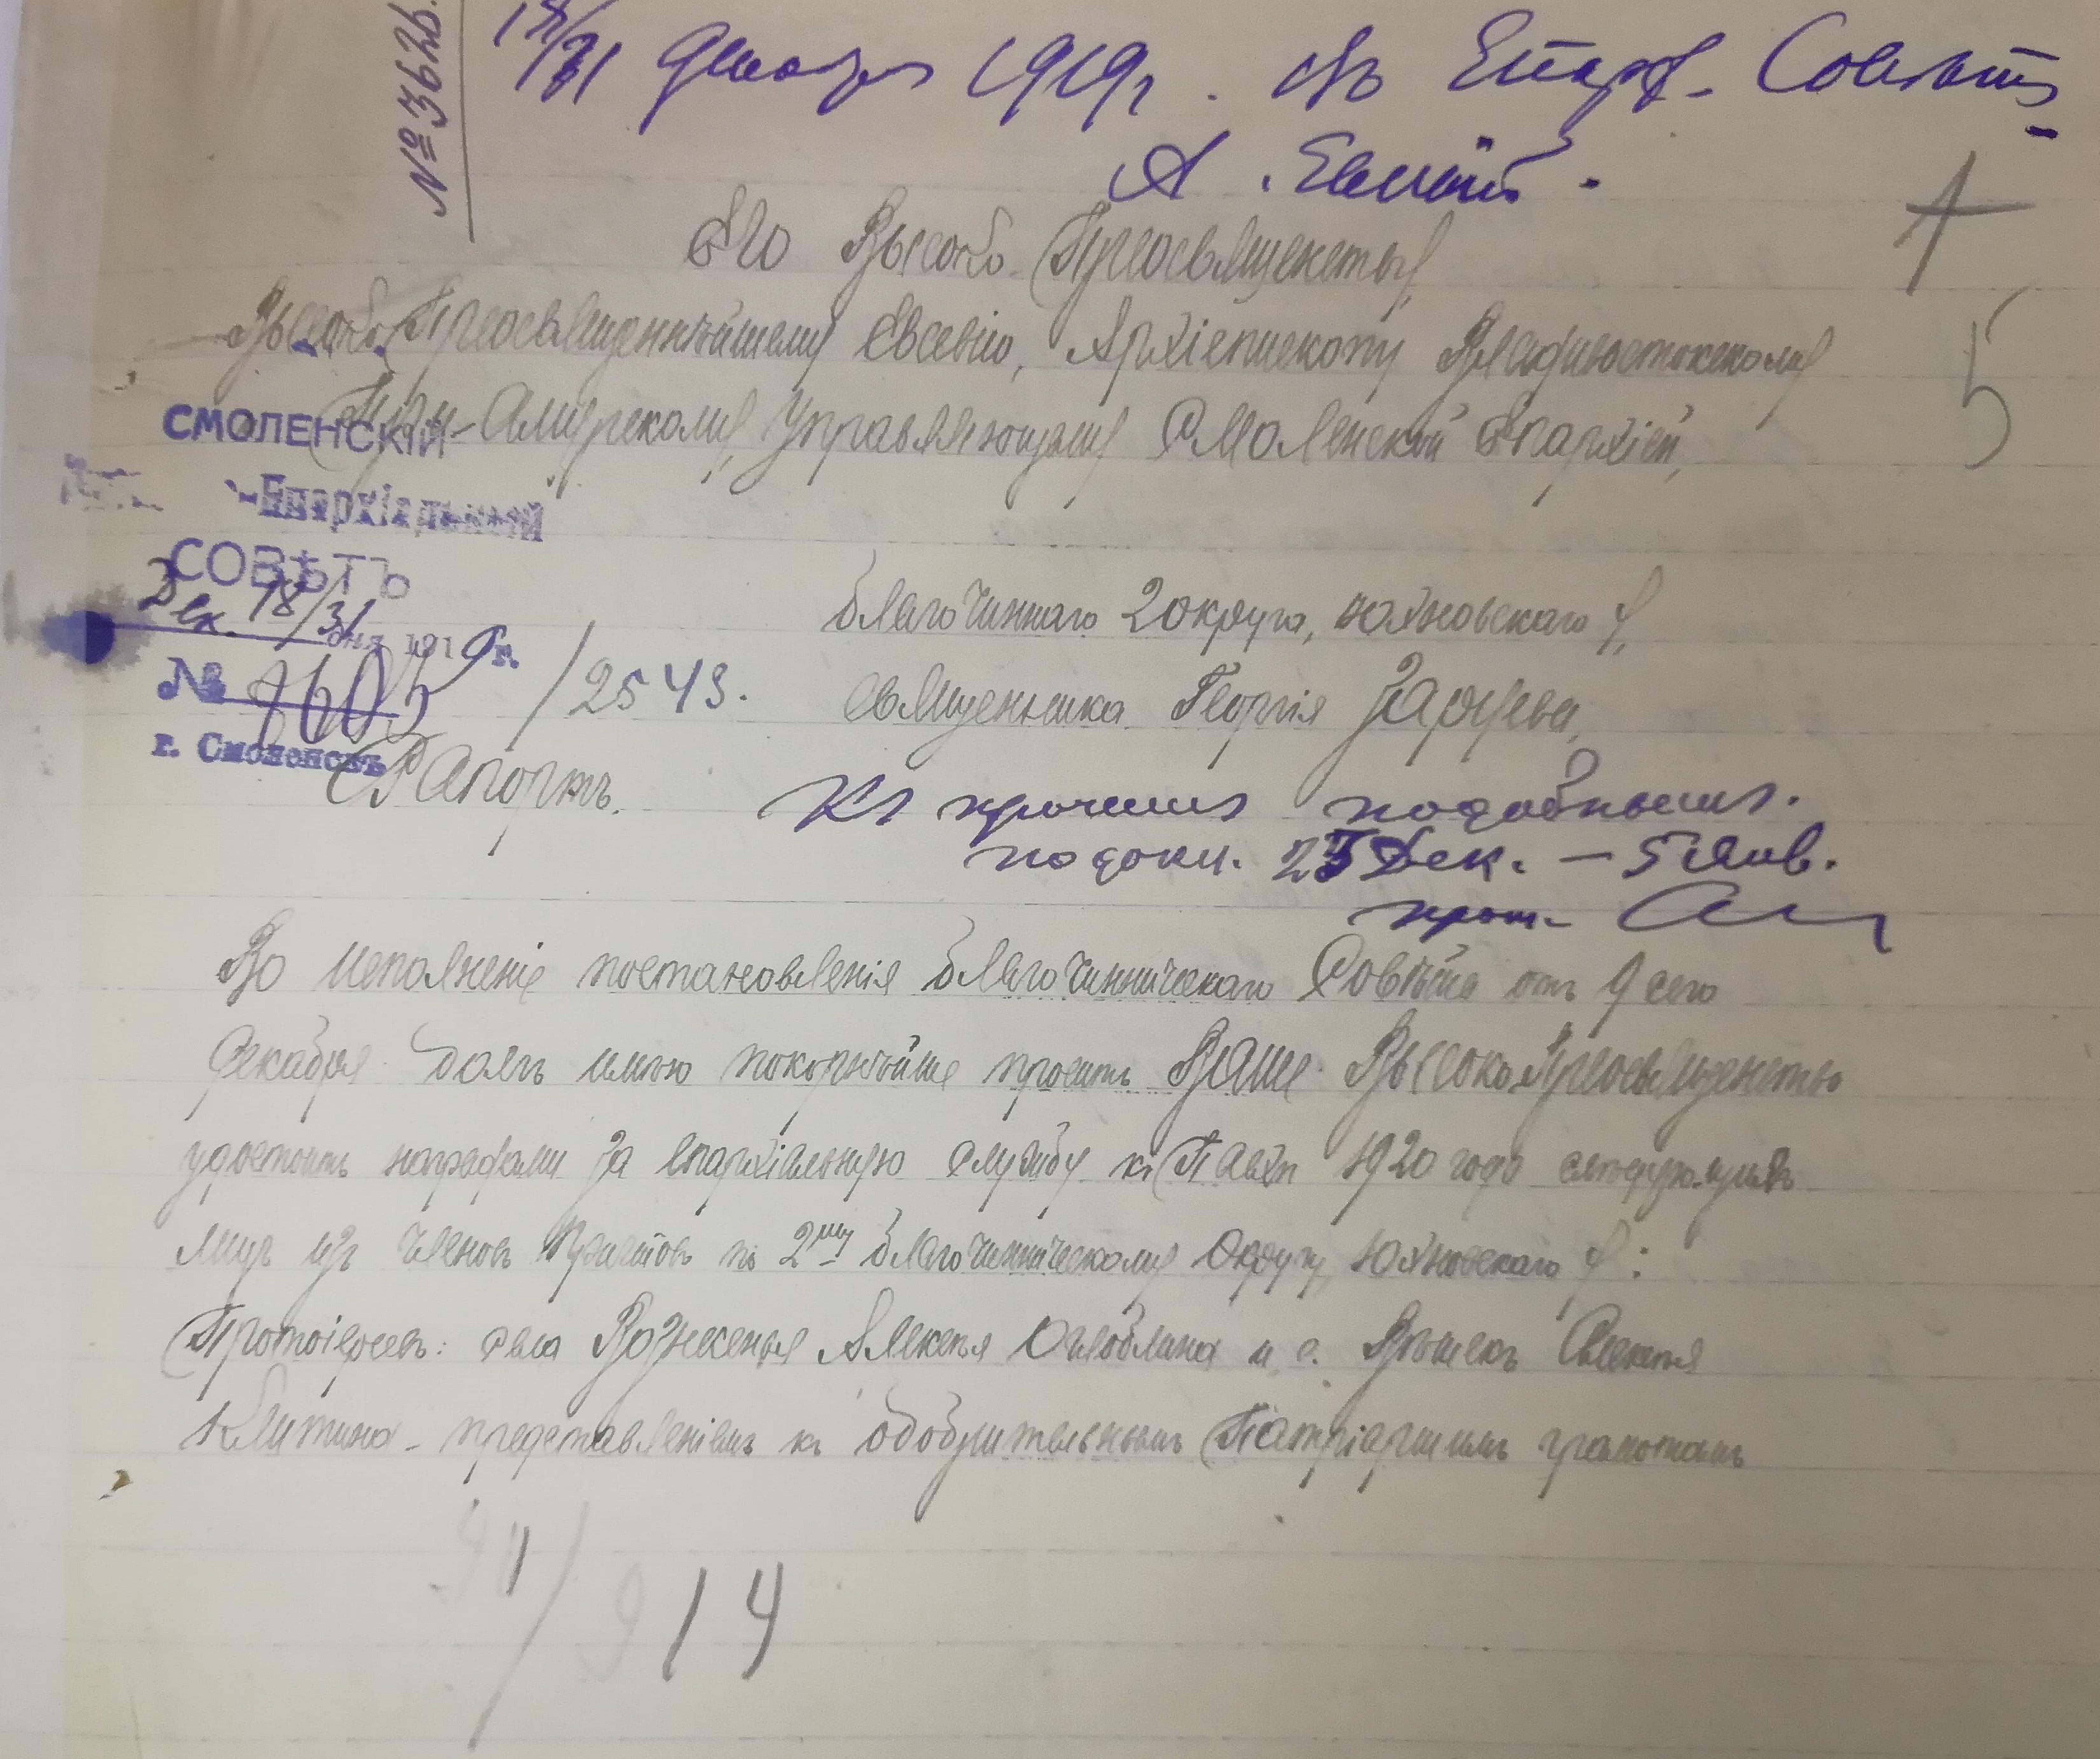 № 3626.
18/31 Декабря 1919 г. Въ Епарх. Совѣтъ.
А. Евсевій.
Его Высоко Преосвященству
1
5
Высоко Преосвященнѣйшему Евсевію, Архіепископу Владивостокскому
При-Амурскому, Управляющему Смоленской Епархіей,
СМОЛЕНСКІЙ
Епархіальный
СОВѢТЪ
Дек. 18/31 дня 1919 г.
№ /2543.
г. Смоленскъ
Благочиннаго 2 округа, Юхновскаго у,
Священника Георгія Зарцева,
Рапортъ.
Къ прочимъ подобнымъ.
по докл. Дек. – 5 Янв.
прот.
Во исполненіе постановленія Благочинническаго Совѣта отъ 9 сего
Декабря долгъ имѣю покорнѣйше просить Ваше ВысокоПреосвященство
удостоить наградами за епархіальную службу къ Пасхѣ 1920 года слѣдующихъ
лицъ изъ членовъ Причтовъ по 2му Благочинническому Округу Юхновскаго у:
Протоіереевъ: села Вознесенья Алексѣя Оглоблина и с. Алексѣя
Клитина – представленіемъ къ одобрительнымъ Патріаршимъ грамотамъ
14